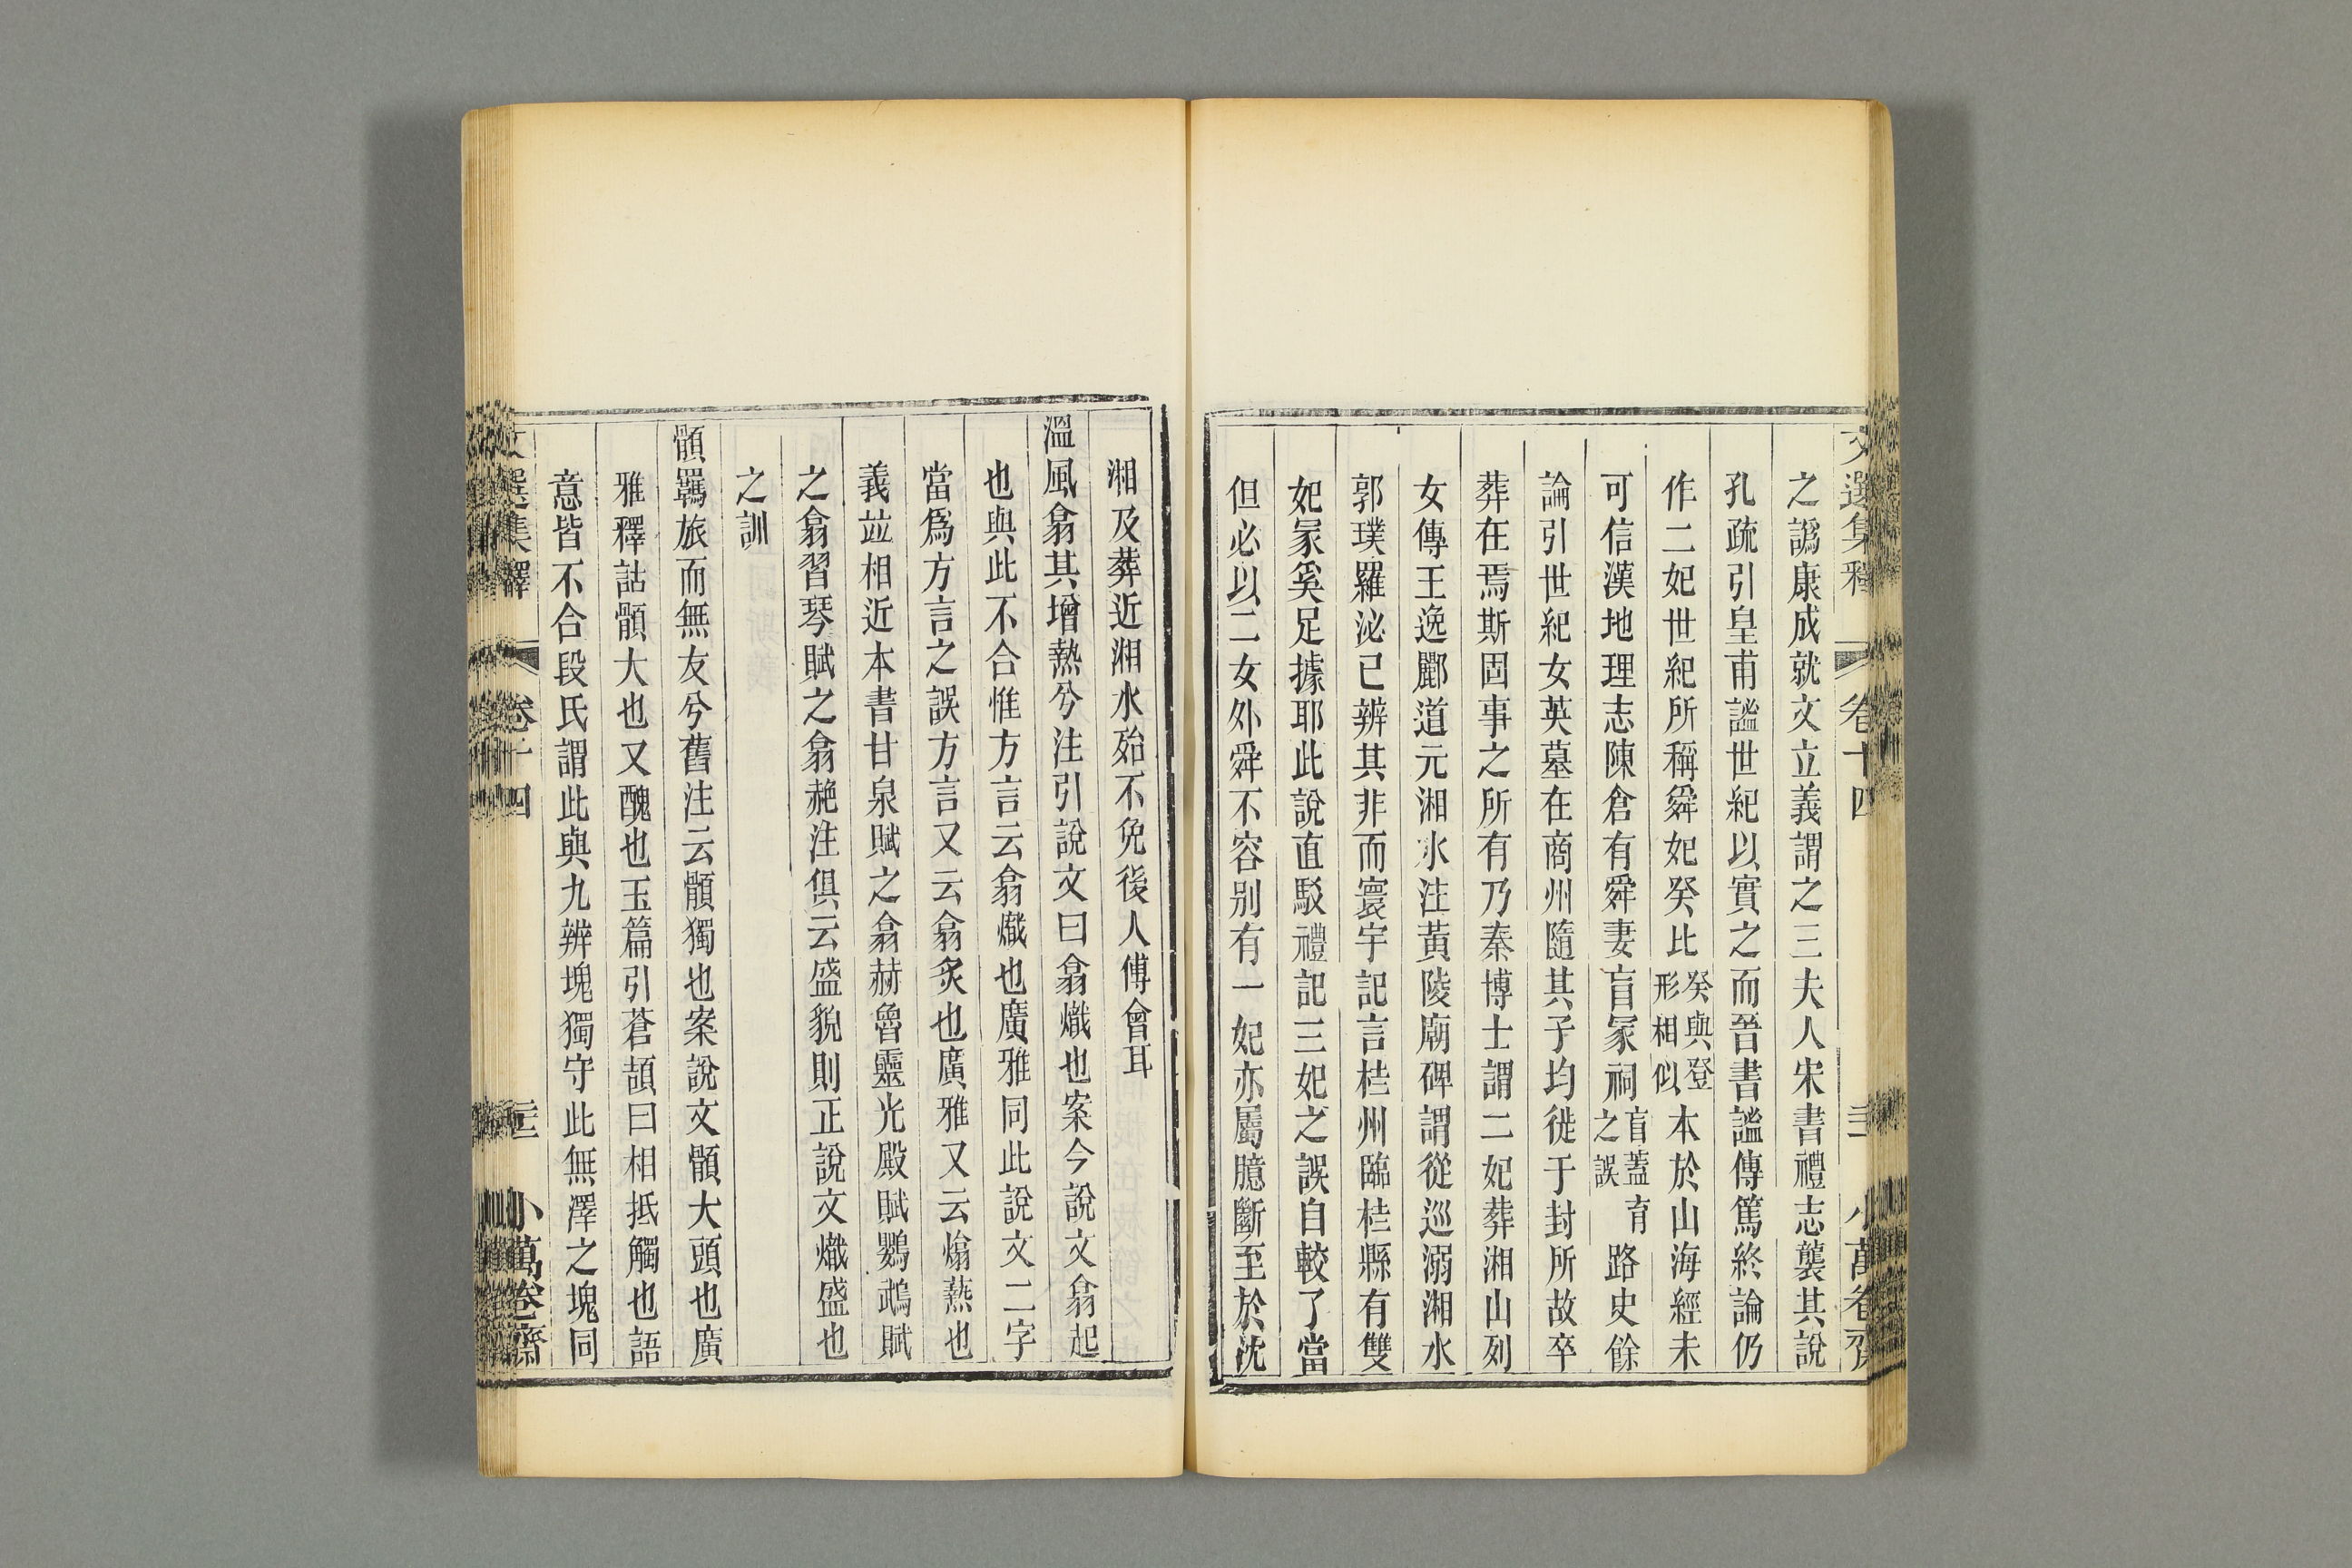 文選集釋 卷十四 三 小萬卷齋
之譌康成就文立義謂之三夫人宋書禮志襲其說
孔疏引皇甫謐世紀以實之而晉書謐傳篤終論仍
作二妃世紀所稱舜妃癸比癸與登形相似本於山海經未
可信漢地理志陳倉有舜妻盲冢祠盲蓋育之誤路史餘
論引世紀女英墓在商州隨其子均徙于封所故卒
葬在焉斯固事之所有乃秦博士謂二妃葬湘山列
女傳王逸酈道元湘水注黃陵廟碑謂從巡溺湘水
郭璞羅泌已辨其非而寰宇記言桂州臨桂縣有雙
妃冢奚足據耶此說直駁禮記三妃之誤自較了當
但必以二女外舜不容別有一妃亦屬臆斷至於沈
湘及葬近湘水殆不免後人傅會耳
溫風翕其增熱兮注引說文曰翕熾也案今說文翕起
也與此不合惟方言云翕熾也廣雅同此說文二字
當爲方言之誤方言又云翕炙也廣雅又云熻爇也
義竝相近本書甘泉賦之翕赫魯靈光殿賦鸚鵡賦
之翕習琴賦之翕赩注俱云盛貌則正說文熾盛也
之訓
顝羈旅而無友兮舊注云顝獨也案說文顝大頭也廣
雅釋詁顝大也又醜也玉篇引蒼頡曰相抵觸也語
意皆不合段氏謂此與九辨塊獨守此無澤之塊同
文選集釋 卷十四 小萬卷齋